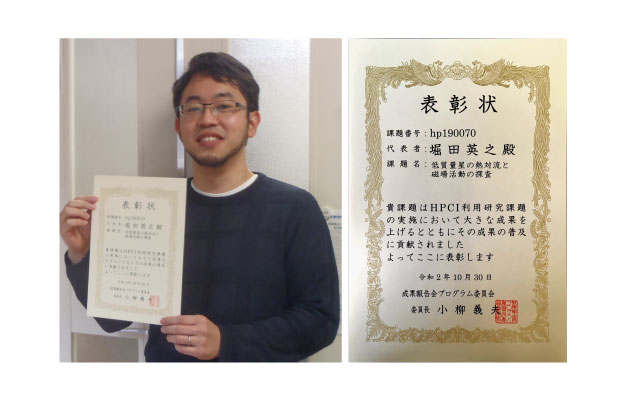 表彰状
課題番号：hp190070
代表者：堀田英之殿
課題名：低質量星の熱対流と
磁場活動の探査
貴課題はHPCI利用研究課題
の実施において大きな成果を
上げるとともにその成果の普及
に貢献されました
よってここに表彰します
令和2年10月30日
成果報告会プログラム委員会
委員長 小柳義夫
表彰状
hp190070
堀田英之殿